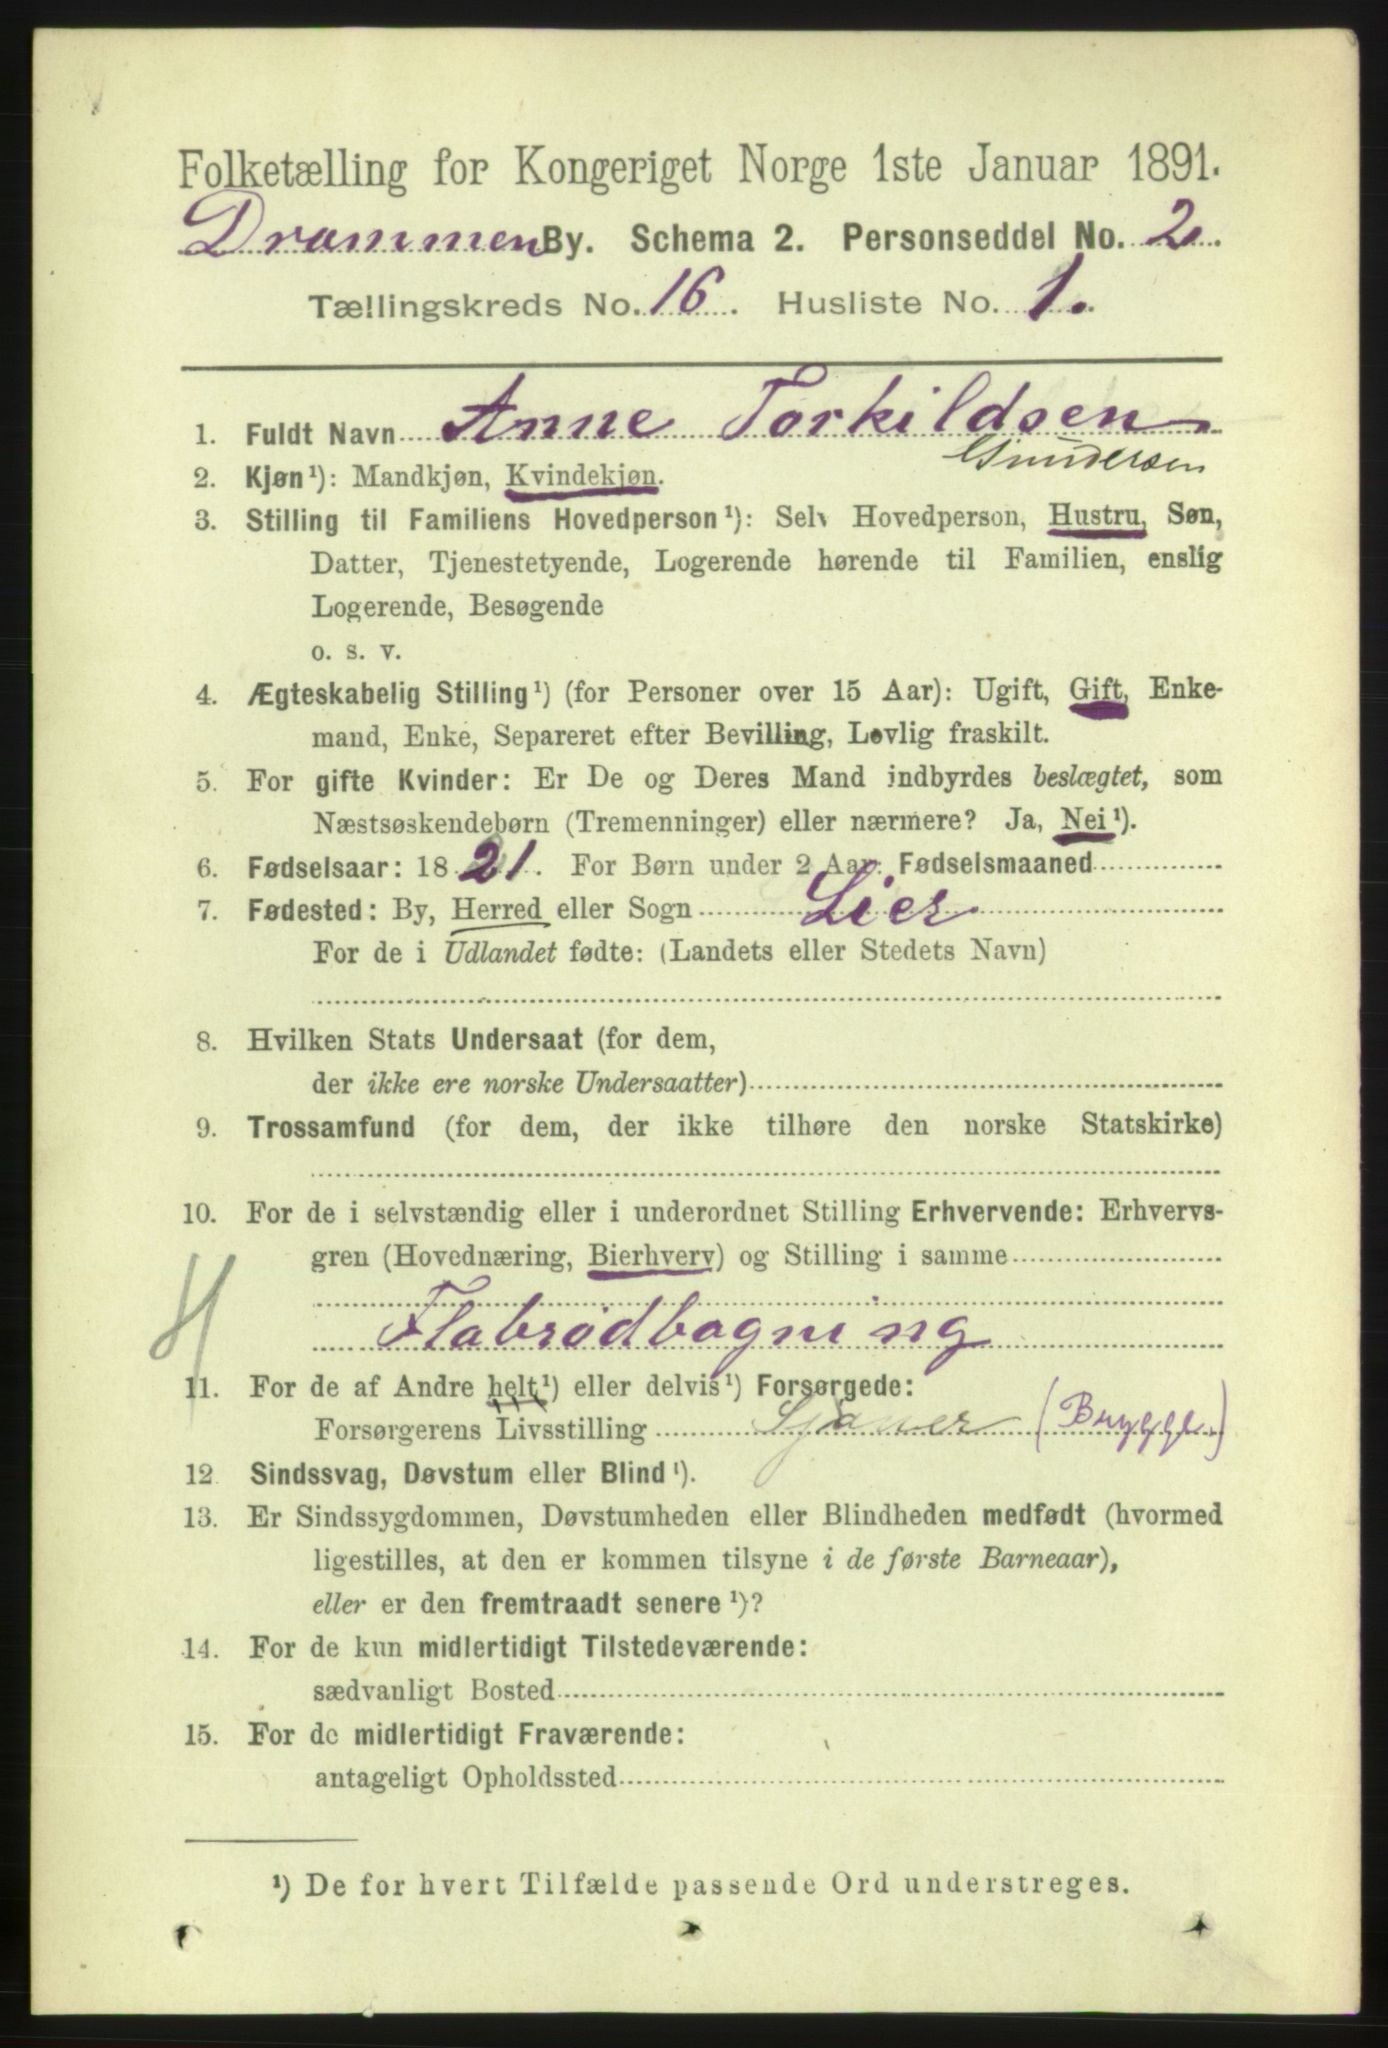 Folketælling for Kongeriget Norge 1ste Januar 1891.
Drammen By. Schema 2. Personseddel No. 2.
Tællingskreds No. 16. Husliste No. 1.
1. Fuldt Navn Anne Torkildsen
Gundersen
2. Kjøn¹): Mandkjøn, Kvindekjøn.
3. Stilling til Familiens Hovedperson¹): Selv Hovedperson, Hustru, Søn,
Datter, Tjenestetyende, Logerende hørende til Familien, enslig
Logerende, Besøgende
o. s. v.
4. Ægteskabelig Stilling¹) (for Personer over 15 Aar): Ugift, Gift, Enke-
mand, Enke, Separeret efter Bevilling, Lovlig fraskilt.
5. For gifte Kvinder: Er De og Deres Mand indbyrdes beslægtet, som
Næstsøskendebørn (Tremenninger) eller nærmere? Ja, Nei¹).
6. Fødselsaar: 1821. For Børn under 2 Aar: Fødselsmaaned
7. Fødested: By, Herred eller Sogn Lier
For de i Udlandet fødte: (Landets eller Stedets Navn)
8. Hvilken Stats Undersaat (for dem,
der ikke ere norske Undersaatter)
9. Trossamfund (for dem, der ikke tilhøre den norske Statskirke)
10. For de i selvstændig eller i underordnet Stilling Erhvervende: Erhvervs-
gren (Hovednæring, Bierhverv) og Stilling i samme
Flabrødbagning
11. For de af Andre helt¹) eller delvis¹) Forsørgede:
Forsørgerens Livsstilling Sjauer (Brygge)
12. Sindssvag, Døvstum eller Blind¹).
13. Er Sindssygdommen, Døvstumheden eller Blindheden medfødt (hvormed
ligestilles, at den er kommen tilsyne i de første Barneaar),
eller er den fremtraadt senere¹)?
14. For de kun midlertidigt Tilstedeværende:
sædvanligt Bosted
15. For de midlertidigt Fraværende:
antageligt Opholdssted
¹) De for hvert Tilfælde passende Ord understreges.